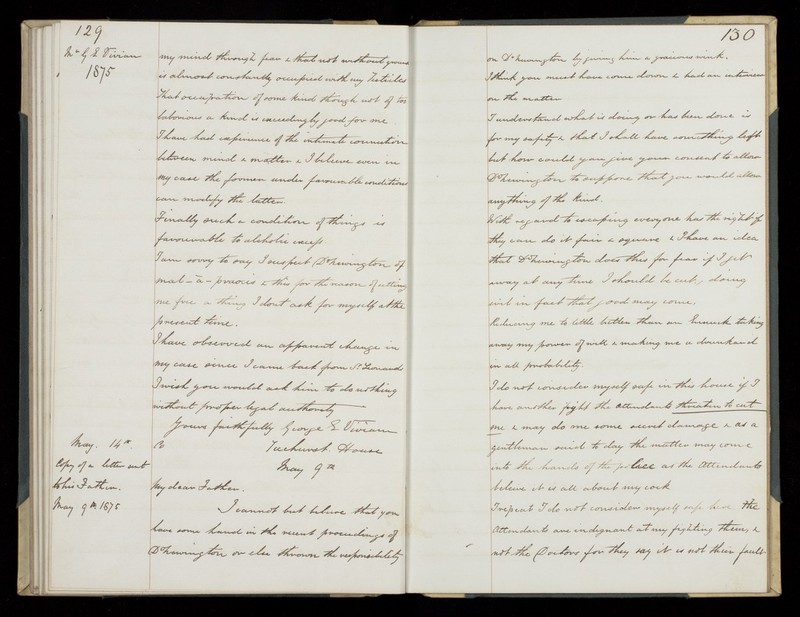 129
Mr G. E. Vivian
1875
my mind through fear & that not without ground
is almost constantly occupied with my Testicles
That occupation of some kind though not of too
laborious a kind is exceedingly good for one
I have had experience of the intimate connection
between mind & matter & I believe even in
my case the former under favourable conditions
can modify the latter
Finally such a condition of things is
favourable to alcholic excess
I am sorry to say I suspect Dr Newington of
mal-a-praxis & this for the reason of
me for a thing I dont ask for myself at the
present time.
I have observed an apparent change in
my case since I came back from St Leonards
I wish you would ask him to do nothing
without proper legal authority
Yours faithfully George E. Vivian
May. 14th
Copy of a letter sent
to his Father.
May 9th 1875
Ticehurst House
May 9th
My dear Father.
I cannot but believe that you
have some hand in the recent proceedings of
Dr Newington or else thrown the responsibility
130
on Dr Newington by giving him a previous wink.
I think you must have come down & had an interview
on the matter
I understand what is doing or has been done is
for my safety & that I shall have something left
but how could you give your consent to allow
Dr Newington to suppose that you would allow
anything of the kind.
With regard to escaping everyone has the right if
they can do it fair & square & I have an idea
that Dr Newington does this for fear if I get
away at any time I should be cut, doing
evil in fact that good may come,
Reducing me to little better than an Eunuch taking
away my power of will & making me a drunkard
in all probability.
I do not consider myself safe in this house if I
have another fight the attendants threaten to cut
me & may do me some secret damage & as a
gentleman said to day the matter may come
into the hands of the police as the Attendants
believe it is all about my cock
I repeat I do not consider myself safe here the
Attendants are indignant at my fighting them, &
not the Doctors for they say it is not their fault